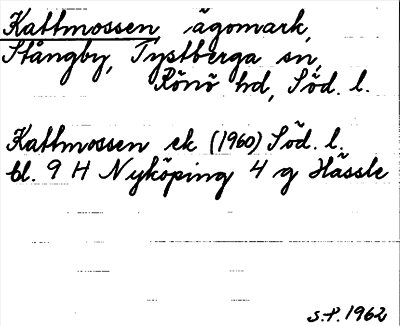 Kattmossen ägomark,
Stångby, Tystberga sn,
Rönö hd, Söd. l.
Kattmossen ek (1960) Söd. l.
bl. 9 H Nyköping 4 g Hässle
S.P. 1962